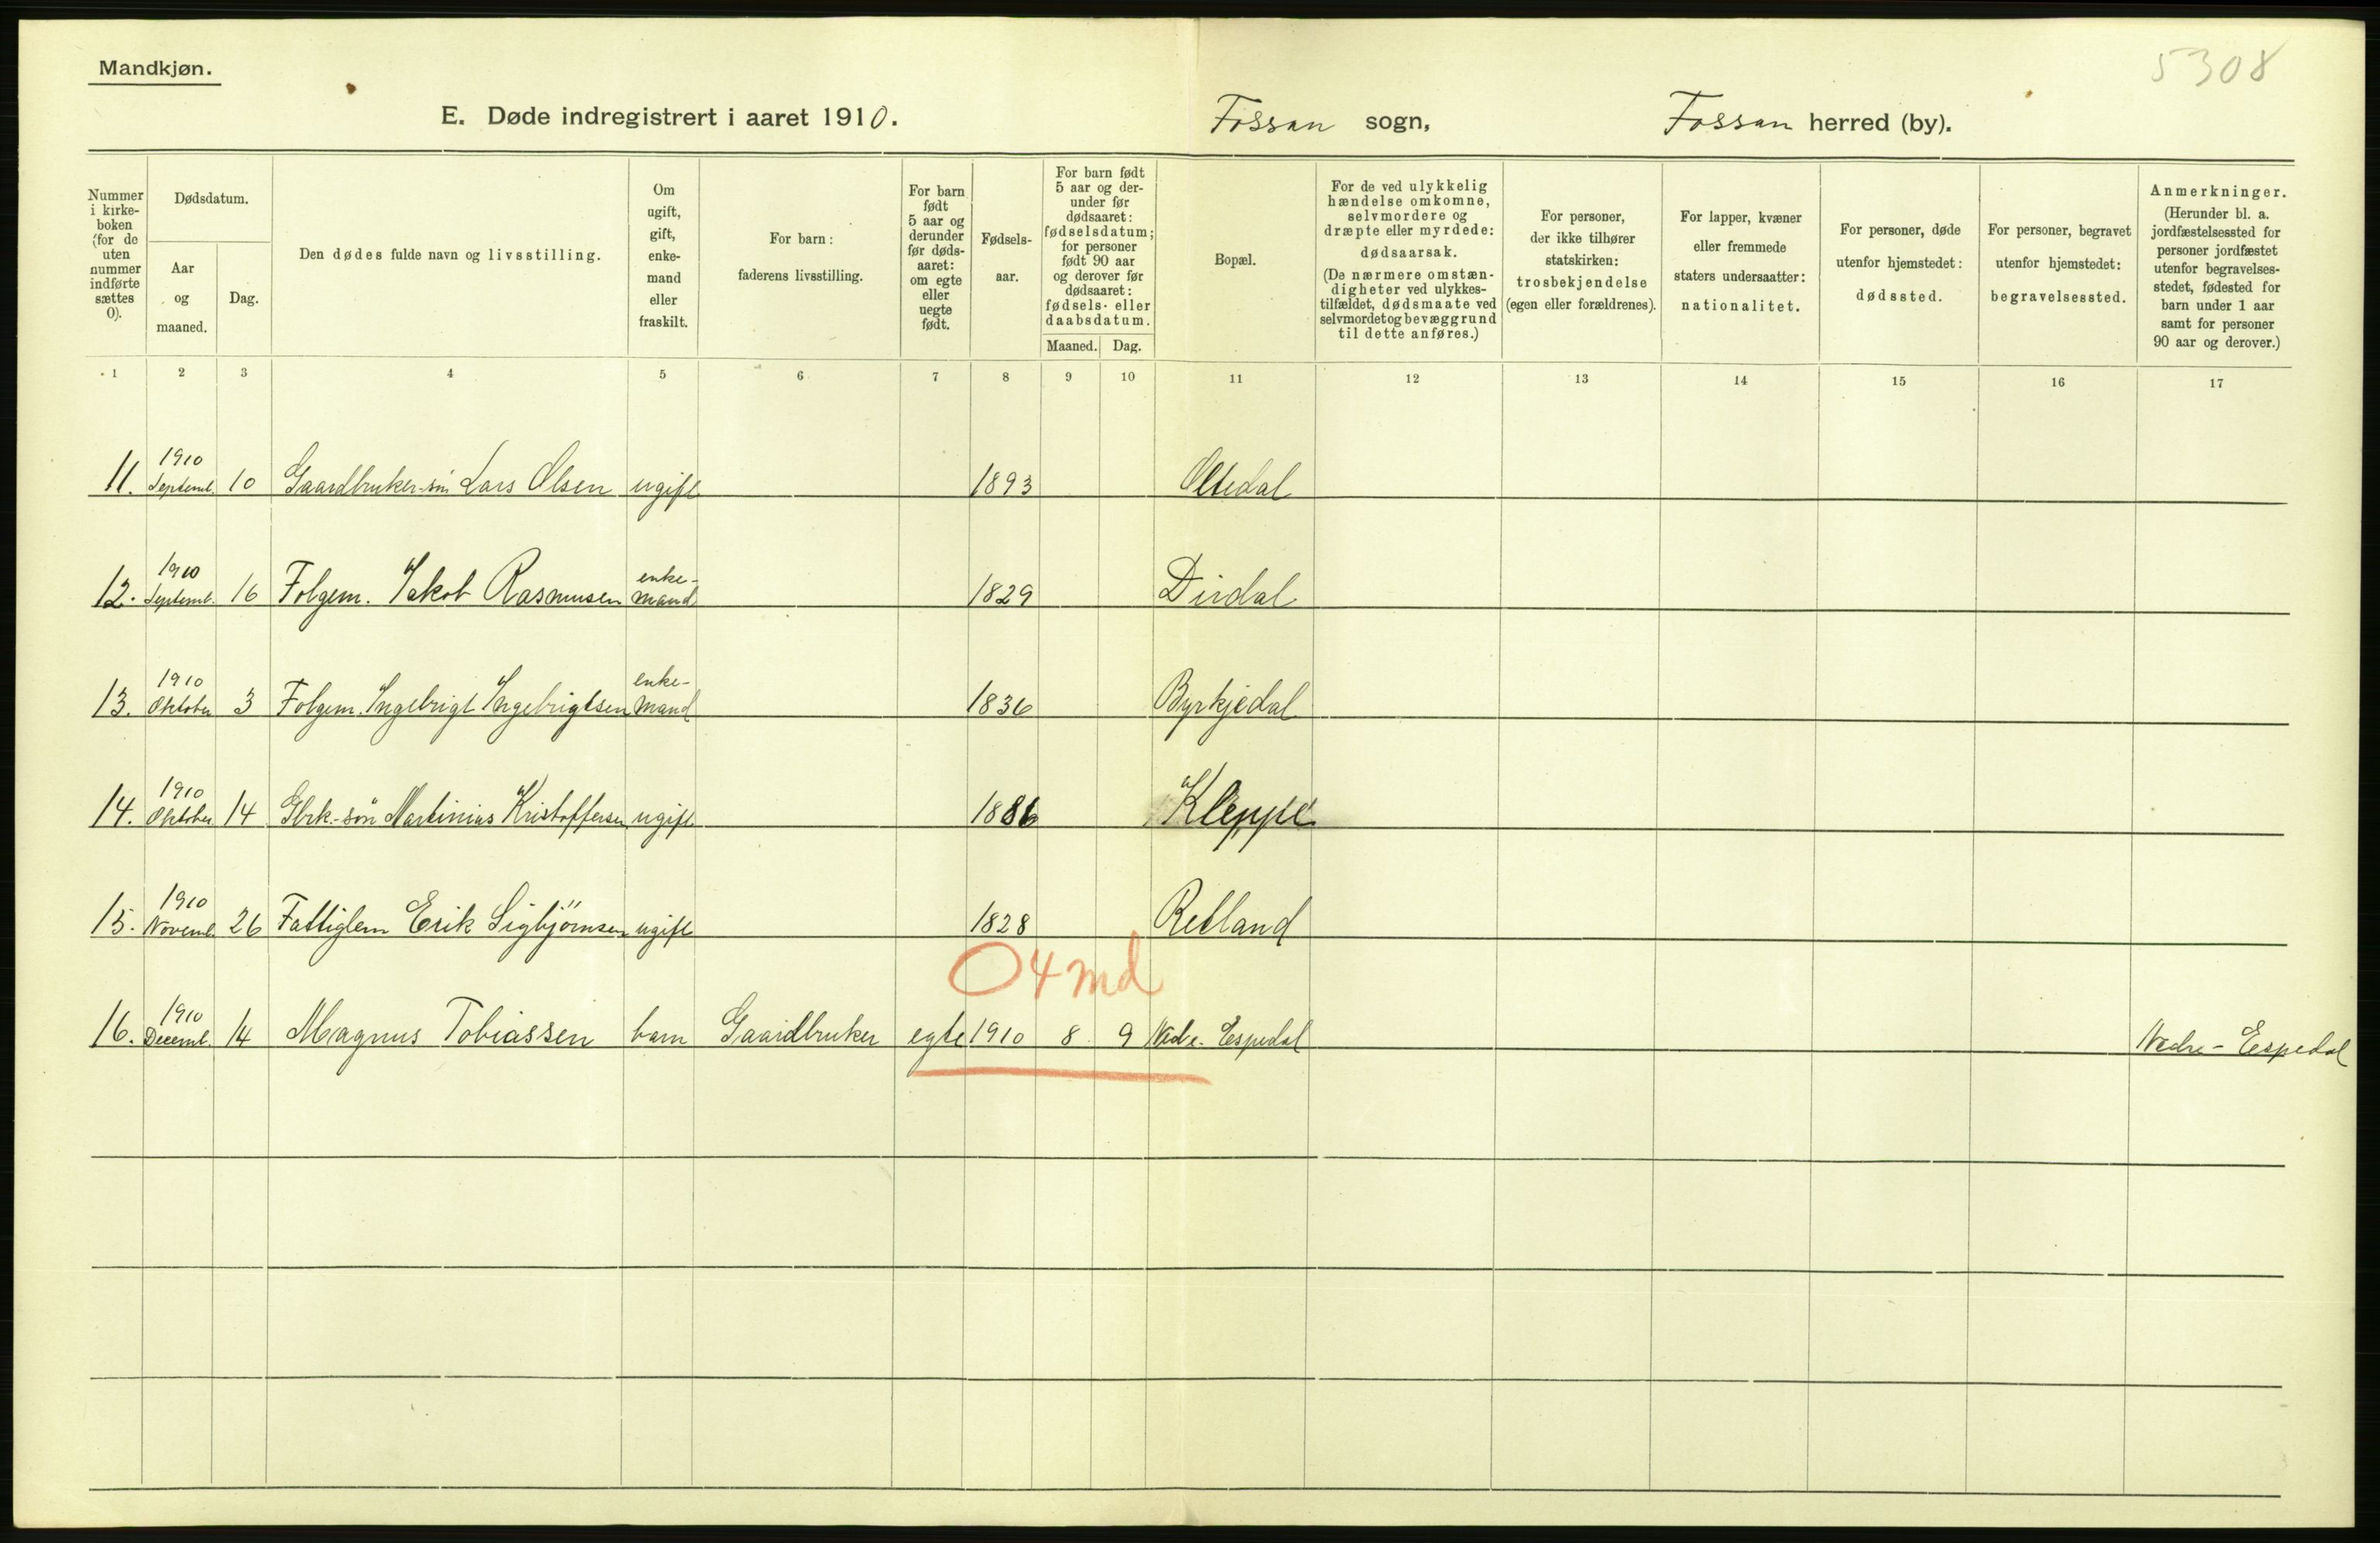 Mandkjøn.
5308
E. Døde indregistrert i aaret 1910. Fossan sogn, Fossan herred (by).
Nummer i kirke- boken (for de uten nummer indførte sættes 0).
Dødsdatum.
Aar og maaned.
Dag.
Den dødes fulde navn og livsstilling.
Om ugift, gift, enke- mand eller fraskilt.
For barn: faderens livsstilling.
For barn født 5 aar og derunder før døds- aaret: om egte eller uegte født.
Fødsels- aar.
For barn født 5 aar og der- under før dødsaaret: fødselsdatum; for personer født 90 aar og derover før dødsaaret: fødsels- eller daabsdatum.
Maaned. Dag.
Bopæl.
For de ved ulykkelig hændelse omkomne, selvmordere og dræpte eller myrdede: dødsaarsak. (De nærmere omstæn- digheter ved ulykkes- tilfældet, dødsmaate ved selvmordet og bevæggrund til dette anføres.)
For personer, der ikke tilhører statskirken: trosbekjendelse (egen eller forældrenes).
For lapper, kvæner eller fremmede staters undersaatter: nationalitet.
For personer, døde utenfor hjemstedet: dødssted.
For personer, begravet utenfor hjemstedet: begravelsessted.
Anmerkninger. (Herunder bl. a. jordfæstelsessted for personer jordfæstet utenfor begravelses- stedet, fødested for barn under 1 aar samt for personer 90 aar og derover.)
1 2 3 4 5 6 7 8 9 10 11 12 13 14 15 16 17
11. 1910 Septemb. 10 Gaardbruker-søn Lars Olsen ugift 1893 Oltedal
12. 1910 Septemb. 16 Folgem. Jakob Rasmusen enke- mand 1829 Dirdal
13. 1910 Oktober 3 Folgem. Ingebrigt Ingebrigtsen enke- mand 1836 Byrkjedal
14. 1910 Oktober 14 Gbrk.-søn Martinius Kristoffersen ugift 1886 Kleppe
15. 1910 Novemb. 26 Fattiglem Erik Sigbjörnsen ugift 1828 Retland
0 4 md
16. 1910 Decemb. 14 Magnus Tobiassen barn Gaardbruker egte 1910 8 9 Nedr. Espedal Nedre-Espedal